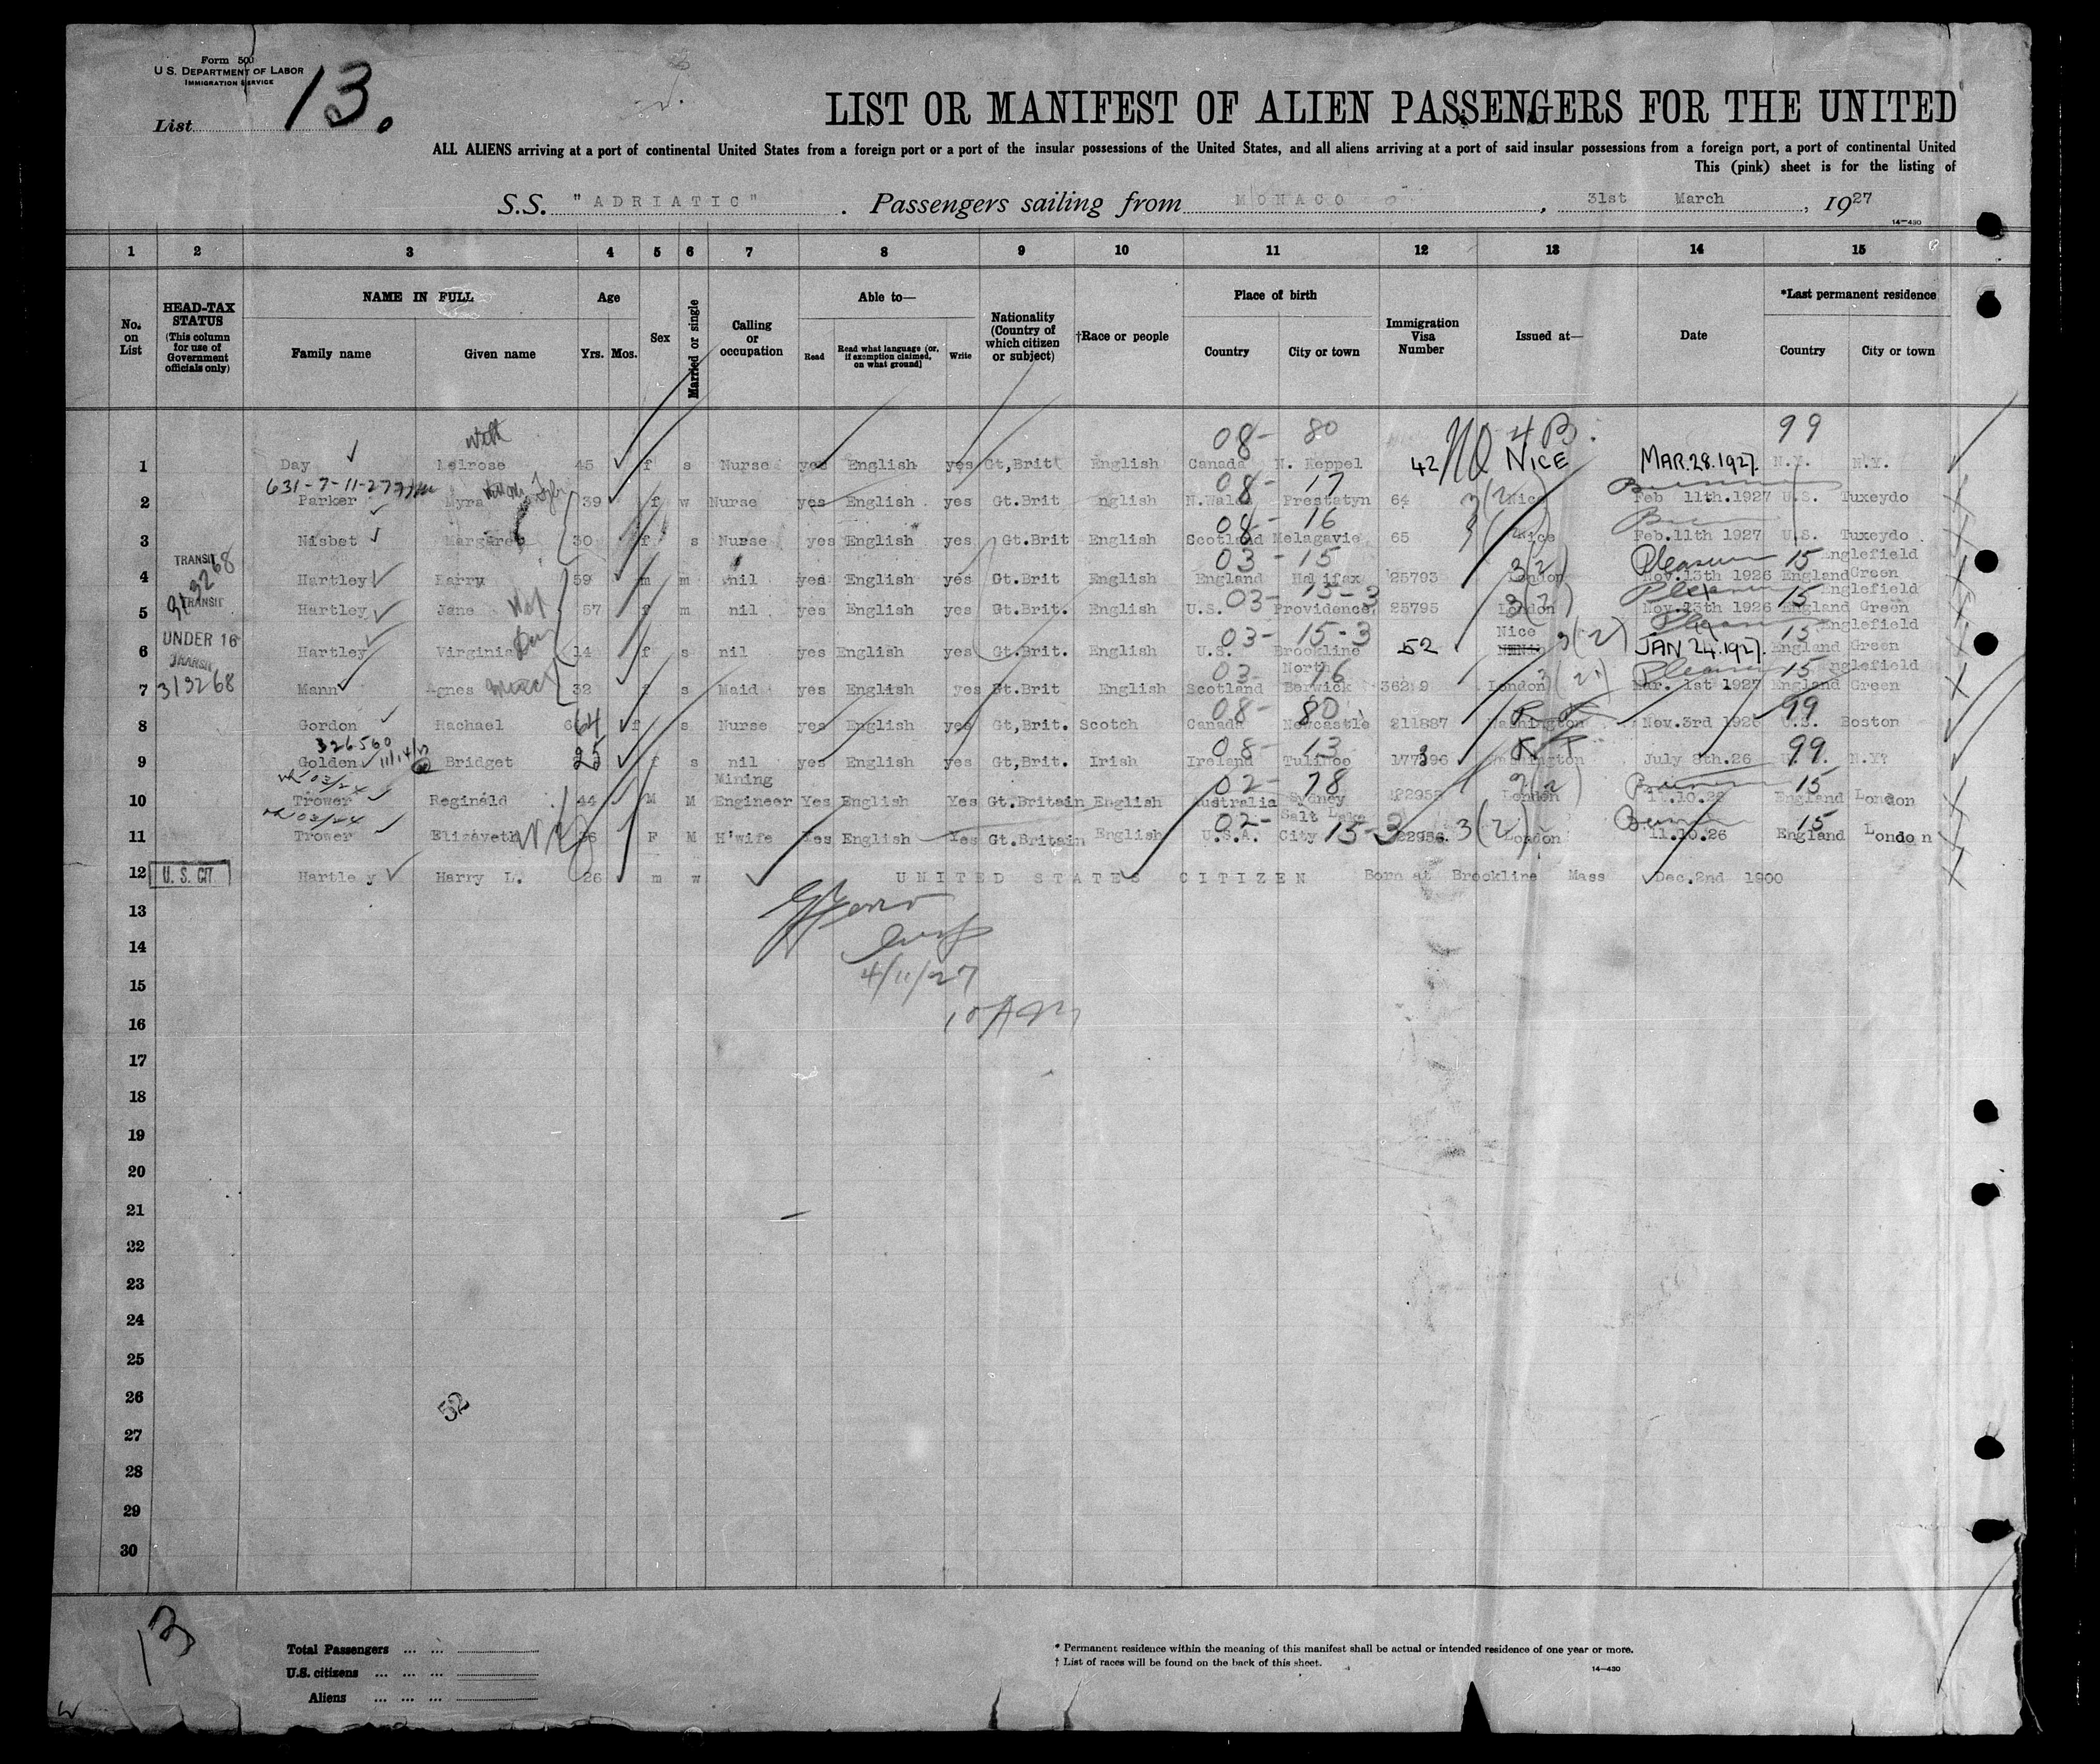 Form 500
U.S. DEPARTMENT OF LABOR
IMMIGRATION SERVICE
List 13.
LIST OR MANIFEST OF ALIEN PASSENGERS FOR THE UNITED
ALL ALIENS arriving at a port of continental United States from a foreign port or a port of the insular possessions of the United States, and all aliens arriving at a port of said insular possessions from a foreign port, a port of continental United
This (pink) sheet is for the listing of
S.S. "ADRIATIC" . Passengers sailing from MONACO , 31st March , 1927
14—430
1 2 3 4 5 6 7 8 9 10 11 12 13 14 15
No. on List
HEAD-TAX STATUS (This column for use of Government officials only)
NAME IN FULL Family name Given name
Age Yrs. Mos.
Sex
Married or single
Calling or occupation
Able to— Read Read what language (or, if exemption claimed, on what ground) Write
Nationality (Country of which citizen or subject)
†Race or people
Place of birth Country City or town
Immigration Visa Number
Issued at—
Date
*Last permanent residence Country City or town
08- 80 NO 4 B. 99
1 Day Melrose 45 f s Nurse yes English yes Gt,Brit English Canada N. Keppel 42 NICE MAR.28.1927. N.Y. N.Y.
08- 17
2 Parker Myra 39 f w Nurse yes English yes Gt.Brit nglish N.Wales Prestatyn 64 3(2) Nice Feb 11th.1927 U.S. Tuxeydo
08- 16
3 Nisbet Margaret 30 f s Nurse yes English yes Gt.Brit English Scotland Melagavie 65 Nice Feb.11th 1927 U.S. Tuxeydo
TRANSIT 03- 15 3(2) Pleasure 15 Englefield
4 Hartley Harry 59 m m nil yes English yes Gt.Brit English England Halifax 25793 London Nov.13th 1926 England Green
TRANSIT 03- 15-3 3(2) Pleasure 15 Englefield
5 Hartley Jane 57 f m nil yes English yes Gt.Brit. English U.S. Providence, 25795 London Nov.13th 1926 England Green
UNDER 16 03- 15-3 Nice 3(2) Pleasure 15 Englefield
6 Hartley Virginia 14 f s nil yes English yes Gt.Brit. English U.S. Brookline 52 JAN 24.1927. England Green
TRANSIT 03- North 16 Pleasure 15 Englefield
7 319268 Mann Agnes 32 f s Maid yes English yes Gt.Brit English Scotland Berwick London Mar. 1st 1927 England Green
08- 80 99
8 Gordon Rachael 64 f s Nurse yes English yes Gt,Brit. Scotch Canada Newcastle 211887 Washington Nov.3rd 1926 U.S. Boston
326560 08- 13 99.
9 Golden Bridget 25 f s nil yes English yes Gt,Brit. Irish Ireland Washington July 8th.26 N.Y?
Mining 02- 78 15
10 Trower Reginald 44 M M Engineer Yes English Yes Gt.Britain English Australia Sydney London 11.10.26 England London
02- Salt Lake 15-3 3(2) 15
11 Trower 36 F M H'wife Yes English Yes Gt.Britain English U.S.A. City 22956. London 11.10.26 England London
12 U. S. CIT Hartley Harry L. 26 m w UNITED STATES CITIZEN Born at Brookline Mass Dec.2nd 1900
13
14
4/11/27
15
16
17
18
19
20
21
22
23
24
25
26
52
27
28
29
30
13
Total Passengers ... ...
U.S. citizens ... ... ...
Aliens ... ... ...
* Permanent residence within the meaning of this manifest shall be actual or intended residence of one year or more.
† List of races will be found on the back of this sheet.
14—430